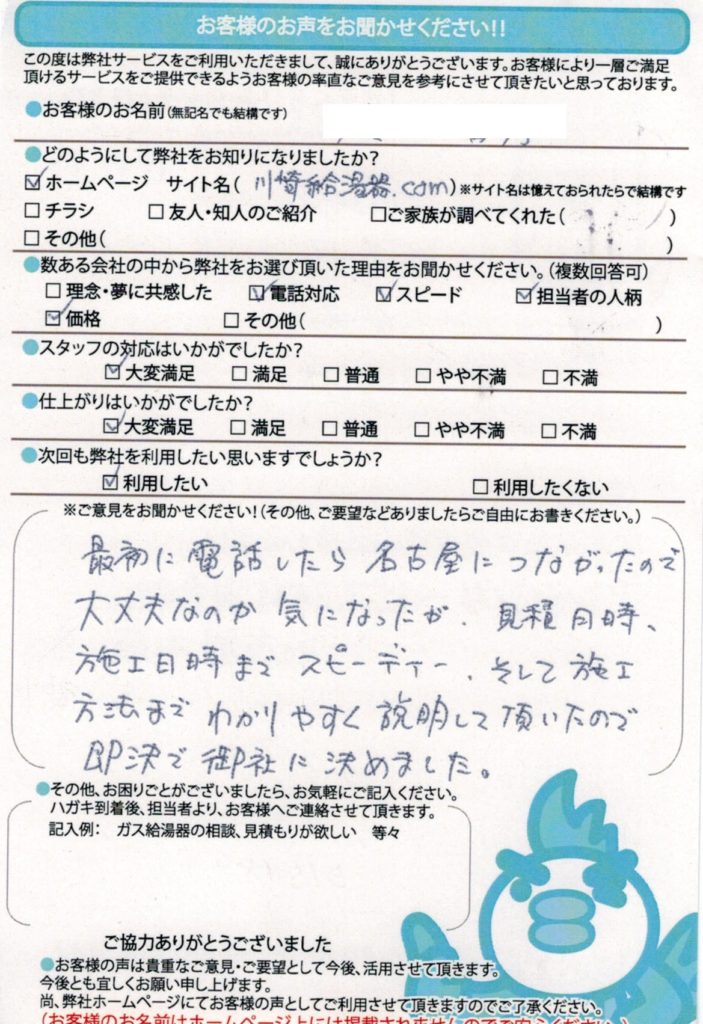 お客様のお声をお聞かせください!!
この度は弊社サービスをご利用いただきまして、誠にありがとうございます。お客様により一層ご満足
頂けるサービスをご提供できるようお客様の率直なご意見を参考にさせて頂きたいと思っております。
●お客様のお名前(無記名でも結構です)
●どのようにして弊社をお知りになりましたか?
☑ホームページ サイト名( 川崎給湯器.com)※サイト名は憶えておられたらで結構です
□チラシ □友人・知人のご紹介 □ご家族が調べてくれた( )
□その他( )
●数ある会社の中から弊社をお選び頂いた理由をお聞かせください。(複数回答可)
□理念・夢に共感した ☑電話対応 ☑スピード ☑担当者の人柄
☑価格 □その他( )
●スタッフの対応はいかがでしたか?
☑大変満足 □満足 □普通 □やや不満 □不満
●仕上がりはいかがでしたか?
☑大変満足 □満足 □普通 □やや不満 □不満
●次回も弊社を利用したい思いますでしょうか?
☑利用したい □利用したくない
※ご意見をお聞かせください!(その他、ご要望などありましたらご自由にお書きください。)
最初に電話したら名古屋につながったので
大丈夫なのか気になったが、見積日時、
施工日時までスピーディー、そして施工
方法までわかりやすく説明して頂いたので
即決で御社に決めました。
●その他、お困りごとがございましたら、お気軽にご記入ください。
ハガキ到着後、担当者より、お客様へご連絡させて頂きます。
記入例: ガス給湯器の相談、見積もりが欲しい 等々
ご協力ありがとうございました
●お客様の声は貴重なご意見・ご要望として今後、活用させて頂きます。
今後とも宜しくお願い申し上げます。
尚、弊社ホームページにてお客様の声としてご利用させて頂きますのでご了承ください。
(お客様のお名前はホームページ上には掲載されませんのでご安心ください)